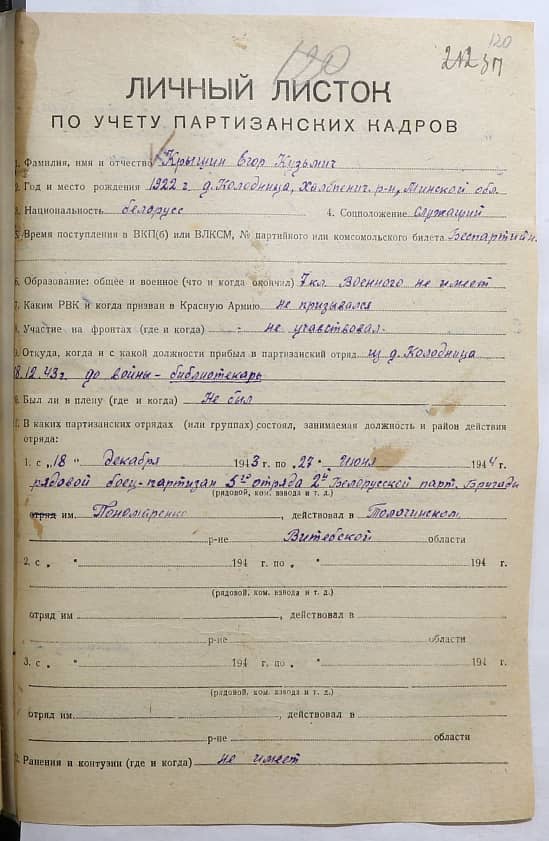 120
120
212 зп
ЛИЧНЫЙ ЛИСТОК
ПО УЧЕТУ ПАРТИЗАНСКИХ КАДРОВ
1. Фамилия, имя и отчество Крышин Егор Кузьмич
2. Год и место рождения 1922 г д. Колодница, Холопенич. р-н, Минской обл.
3. Национальность белорусс 4. Соцположение Служащий
5. Время поступления в ВКП(б) или ВЛКСМ, № партийного или комсомольского билета Беспартийн.
6. Образование: общее и военное (что и когда окончил) 7 кл. Военного не имеет
7. Каким РВК и когда призван в Красную Армию не призывался
8. Участие на фронтах (где и когда) - не учавствовал.
9. Откуда, когда и с какой должности прибыл в партизанский отряд из д. Колодница
18.12.43 г. до войны - библиотекарь
10. Был ли в плену (где и когда) Не был
11. В каких партизанских отрядах (или группах) состоял, занимаемая должность и район действия
отряда:
1. с „18 " декабря 1943 г. по „27 " Июня 1944 г.
рядовой боец-партизан 5го отряда 2й Белорусской парт. Бригады
(рядовой, ком. взвода и т. д.)
отряд им. Пономаренко, действовал в Толочинском
р-не Витебской области
2. с „ " 194 г. по „ " 194 г.
(рядовой, ком. взвода и т. д.)
отряд им , действовал в
р-не области
3. с „ " 194 г. по „ " 194 г.
(рядовой, ком. взвода и т. д.)
отряд им. , действовал в
р-не области
12. Ранения и контузии (где и когда) не имеет